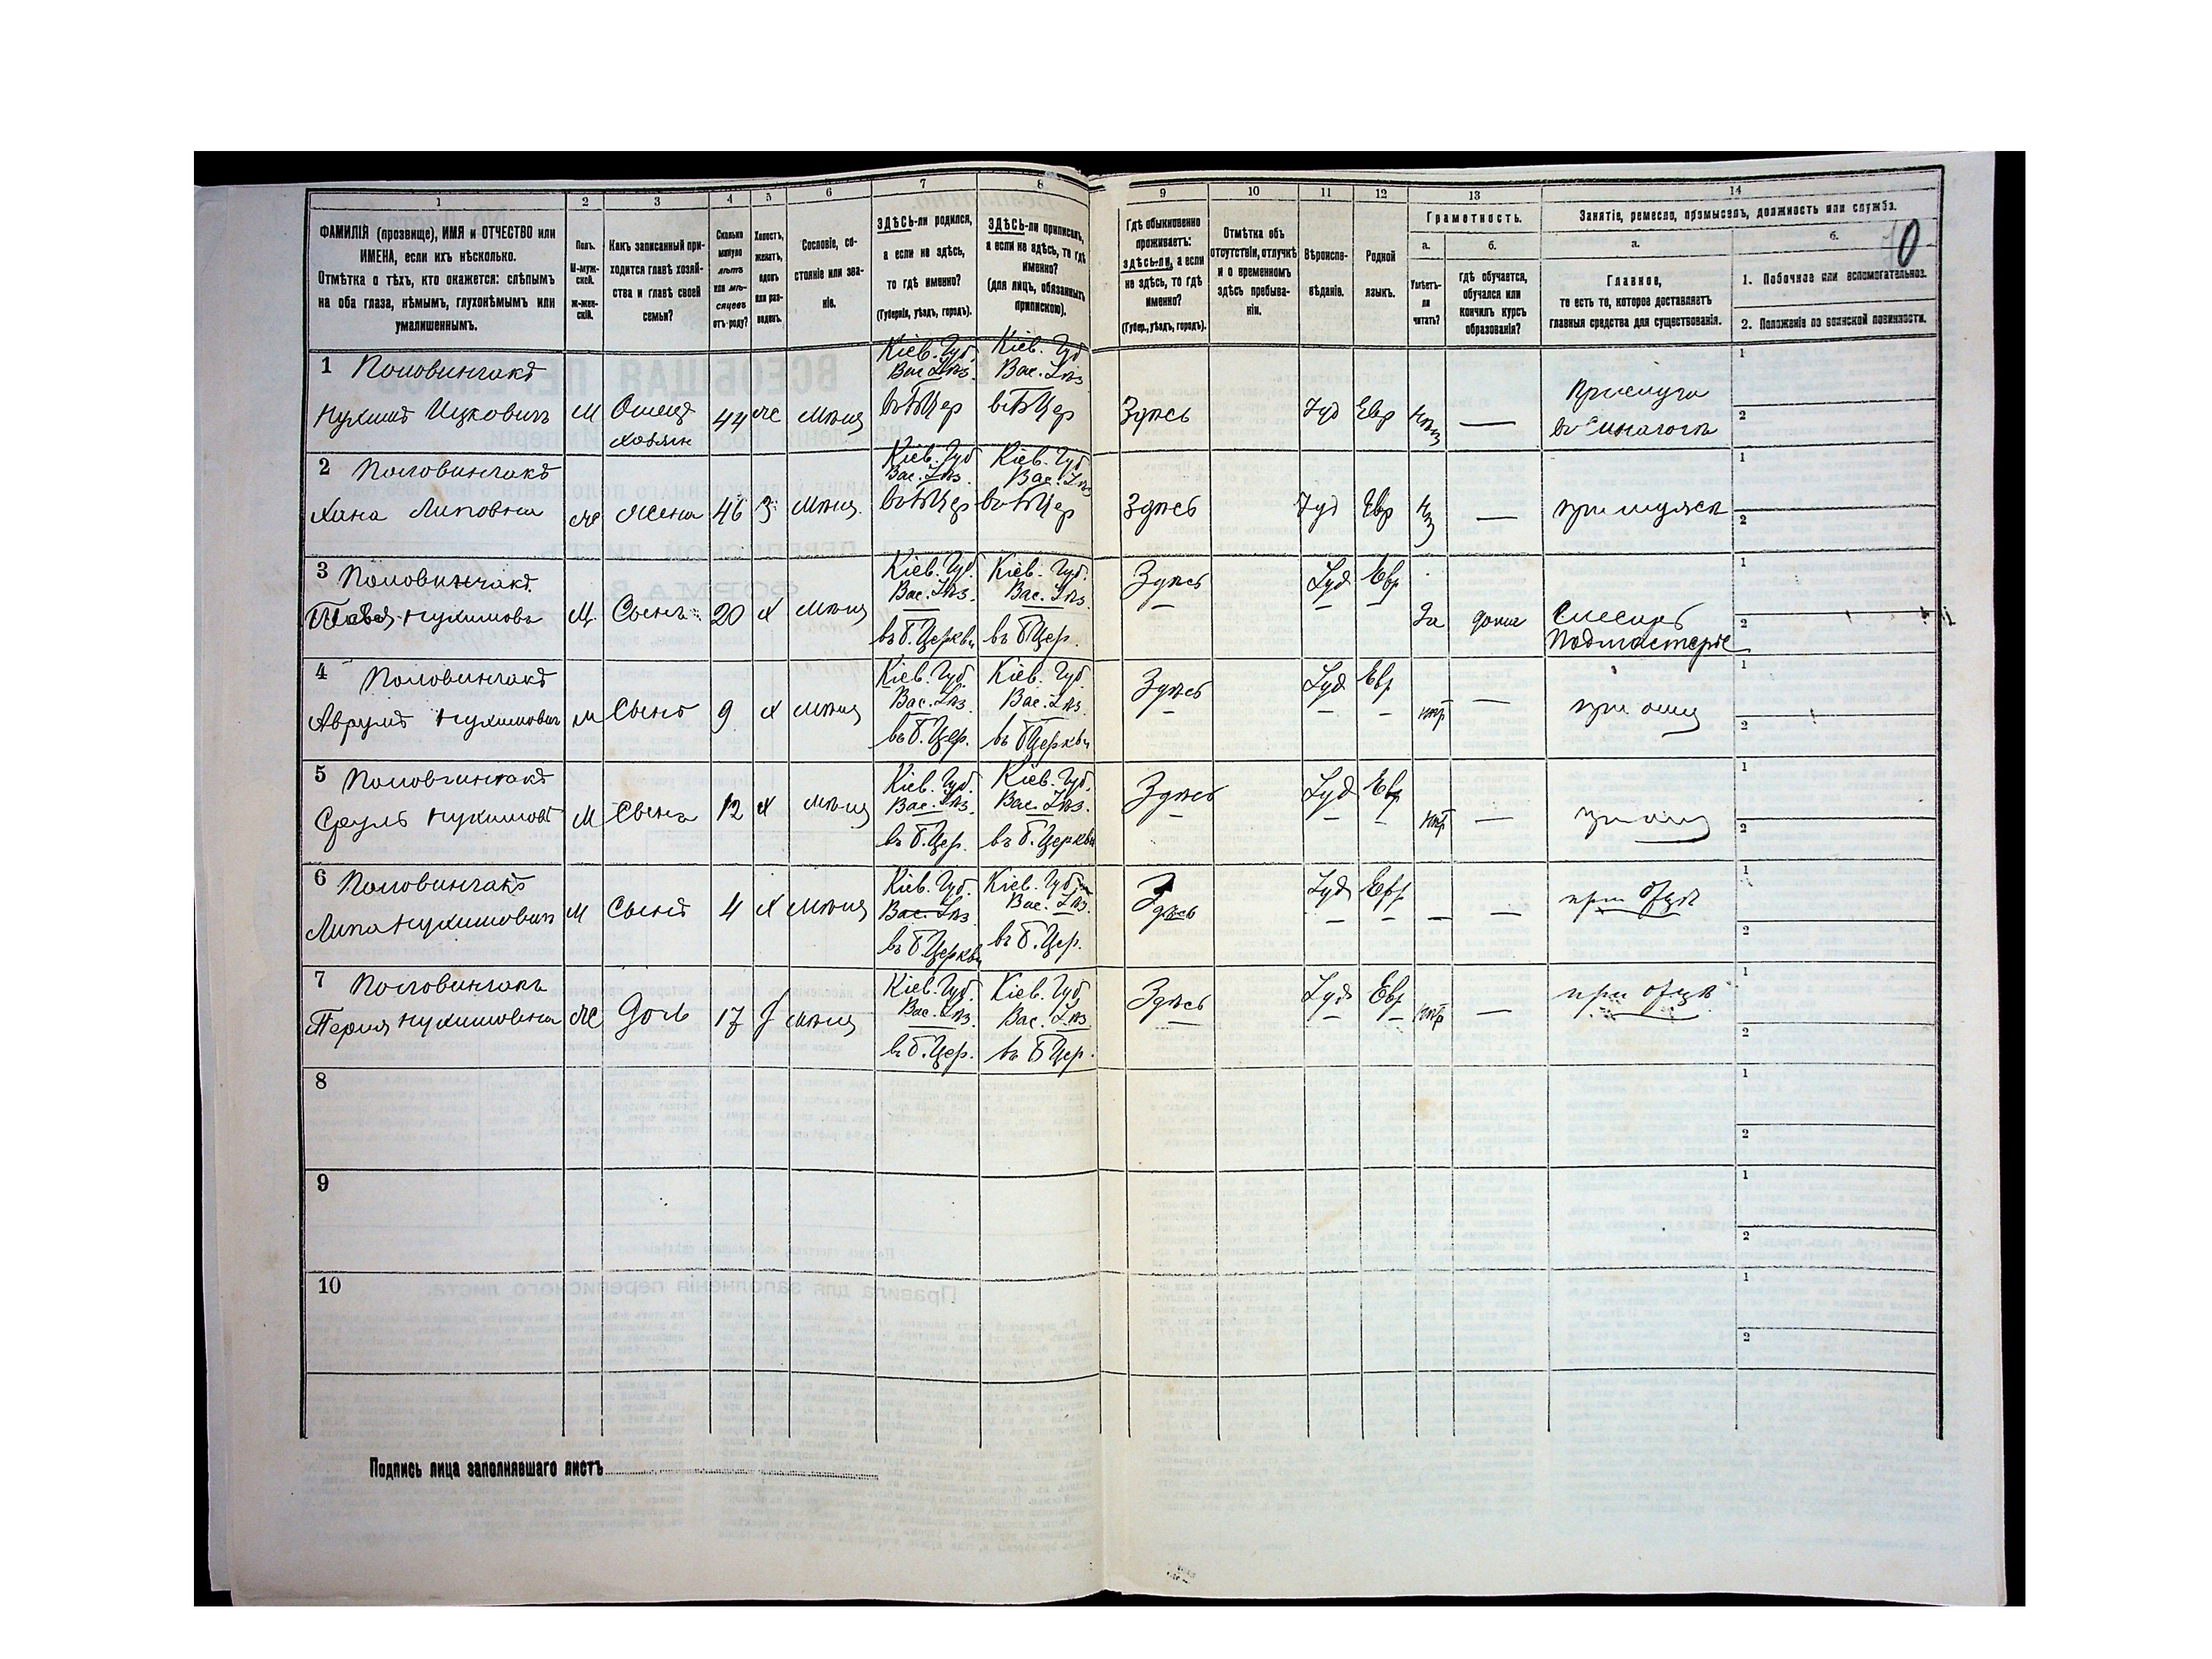 1
2
3
4
5
6
7
8
ФАМИЛІЯ (прозвище), ИМЯ и ОТЧЕСТВО или
ИМЕНА, если ихъ нѣсколько.
Отмѣтка о тѣхъ, кто окажется: слѣпымъ
на оба глаза, нѣмымъ, глухонѣмымъ или
умалишеннымъ.
Полъ.
М-муж-
ской.
Ж-жен-
скій.
Какъ записанный при-
ходится главѣ хозяй-
ства и главѣ своей
семьи?
Сколько
минуло
лѣтъ
или мѣ-
сяцевъ
отъ роду?
Холостъ,
женатъ,
вдовъ
или раз-
веденъ.
Сословіе, со-
стояніе или зва-
ніе.
ЗДѢСЬ-ли родился,
а если не здѣсь,
то гдѣ именно?
(Губернія, уѣздъ, городъ).
ЗДѢСЬ-ли приписанъ,
а если не здѣсь, то гдѣ
именно?
(для лицъ, обязанныхъ
припискою).
9
10
11
12
13
14
Гдѣ обыкновенно
проживаетъ:
здѣсь-ли, а если
не здѣсь, то гдѣ
именно?
(Губер., уѣздъ, городъ).
Отмѣтка объ
отсутствіи, отлучкѣ
и о временномъ
здѣсь пребыва-
ніи.
Вѣроиспо-
вѣданіе.
Родной
языкъ.
Грамотность.
а.
Умѣетъ-
ли
читать?
б.
Гдѣ обучается,
обучался или
кончилъ курсъ
образованія?
Занятіе, ремесло, промыселъ, должность или служба.
а.
Главное,
то есть то, которое доставляетъ
главныя средства для существованія.
б.
1. Побочное или вспомогательное.
2. Положеніе по воинской повинности.
1 Половинчакъ
Нухимъ Ицковичъ М 44 Ж мѣщ
хозяин
Кіев. Губ.
Вас. Уѣз.
въ Б Цер
Кіев. Губ
Вас. Уѣз
въ Б Цер
Здѣсь Іуд Евр —
Прислуга
1
2
2 Половинчакъ
Хана Липовна Ж Жена 46 З мѣщ.
Кіев. Губ
Вас. Уѣз.
въ Б Цер
Кіев. Губ
Вас. Уѣз
въ Б Цер
Здѣсь Іуд Евр — при мужѣ
1
2
3 Половинчакъ.
Нухимовъ М. Сынъ 20 Х мѣщ
Кіев. Губ.
Вас. Уѣз.
въ Б. Церкви
Кіев. Губ.
Вас. Уѣз.
въ Б Цер.
Здѣсь Іуд Евр Да дома
Слесарь
Подмастерье
1
2
4 Половинчакъ
Аврумъ Нухимович М Сынъ 9 Х мѣщ
Кіев. Губ
Вас. Уѣз.
въ Б. Цер.
Кіев. Губ.
Вас. Уѣз.
въ Б Церкви
Здѣсь Іуд Евр — при отц
1
2
5 Половчинчакъ
Сруль Нухимов М Сына 12 Х мѣщ
Кіев. Губ.
Вас. Уѣз.
въ Б. Цер.
Кіев. Губ.
Вас. Уѣз.
въ Б. Церкви
Здѣсь Іуд Евр —
1
2
6 Половинчакъ
Липа Нухимович М Сынъ 4 Х мѣщ
Кіев. Губ.
Вас. Уѣз
въ Б Церкви
Кіев. Губ.
Вас. Уѣз.
въ Б. Цер.
Здѣсь Іуд Евр — — при Отцѣ
1
2
7 Половинчакъ
Перля Нухимовна Ж Дочь 17 мѣщ
Кіев. Губ.
Вас. Уѣз.
въ Б. Цер.
Кіев. Губ.
Вас. Уѣз
въ Б Цер.
Здѣсь Іуд Евр — при отцѣ
1
2
8
1
2
9
1
2
10
1
2
Подпись лица заполнявшаго листъ